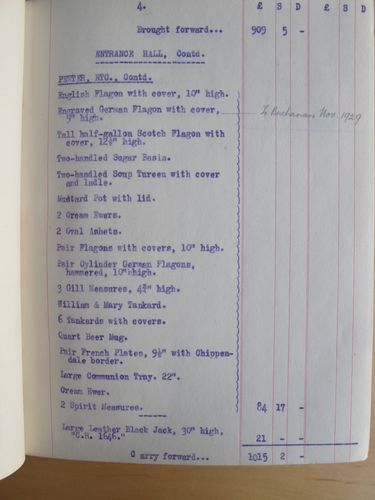 4. £ S D £ S D
Brought forward... 909 5 -
ENTRANCE HALL, Contd.
PEWTER, ETC., Contd.
English Flagon with cover, 10" high.
Engraved German Flagon with cover, To Buchanan, Nov. 1929
9" high.
Tall half-gallon Scotch Flagon with
cover, 12½" high.
Two-handled Sugar Basin.
Two-handled Soup Tureen with cover
and ladle.
Mustard Pot with lid.
2 Cream Ewers.
2 Oval Ashets.
Pair Flagons with covers, 10" high.
Pair Cylinder German Flagons,
hammered, 10" high.
3 Gill Measures, high.
William & Mary Tankard.
6 Tankards with covers.
Quart Beer Mug.
Pair French Plates, 9½" with Chippen-
dale border.
Large Communion Tray. 22".
Cream Ewer.
2 Spirit Measures. 84 17 -
Large Leather Black Jack, 30" high,
"C.R. 1646." 21 - -
Carry forward... 1015 2 -